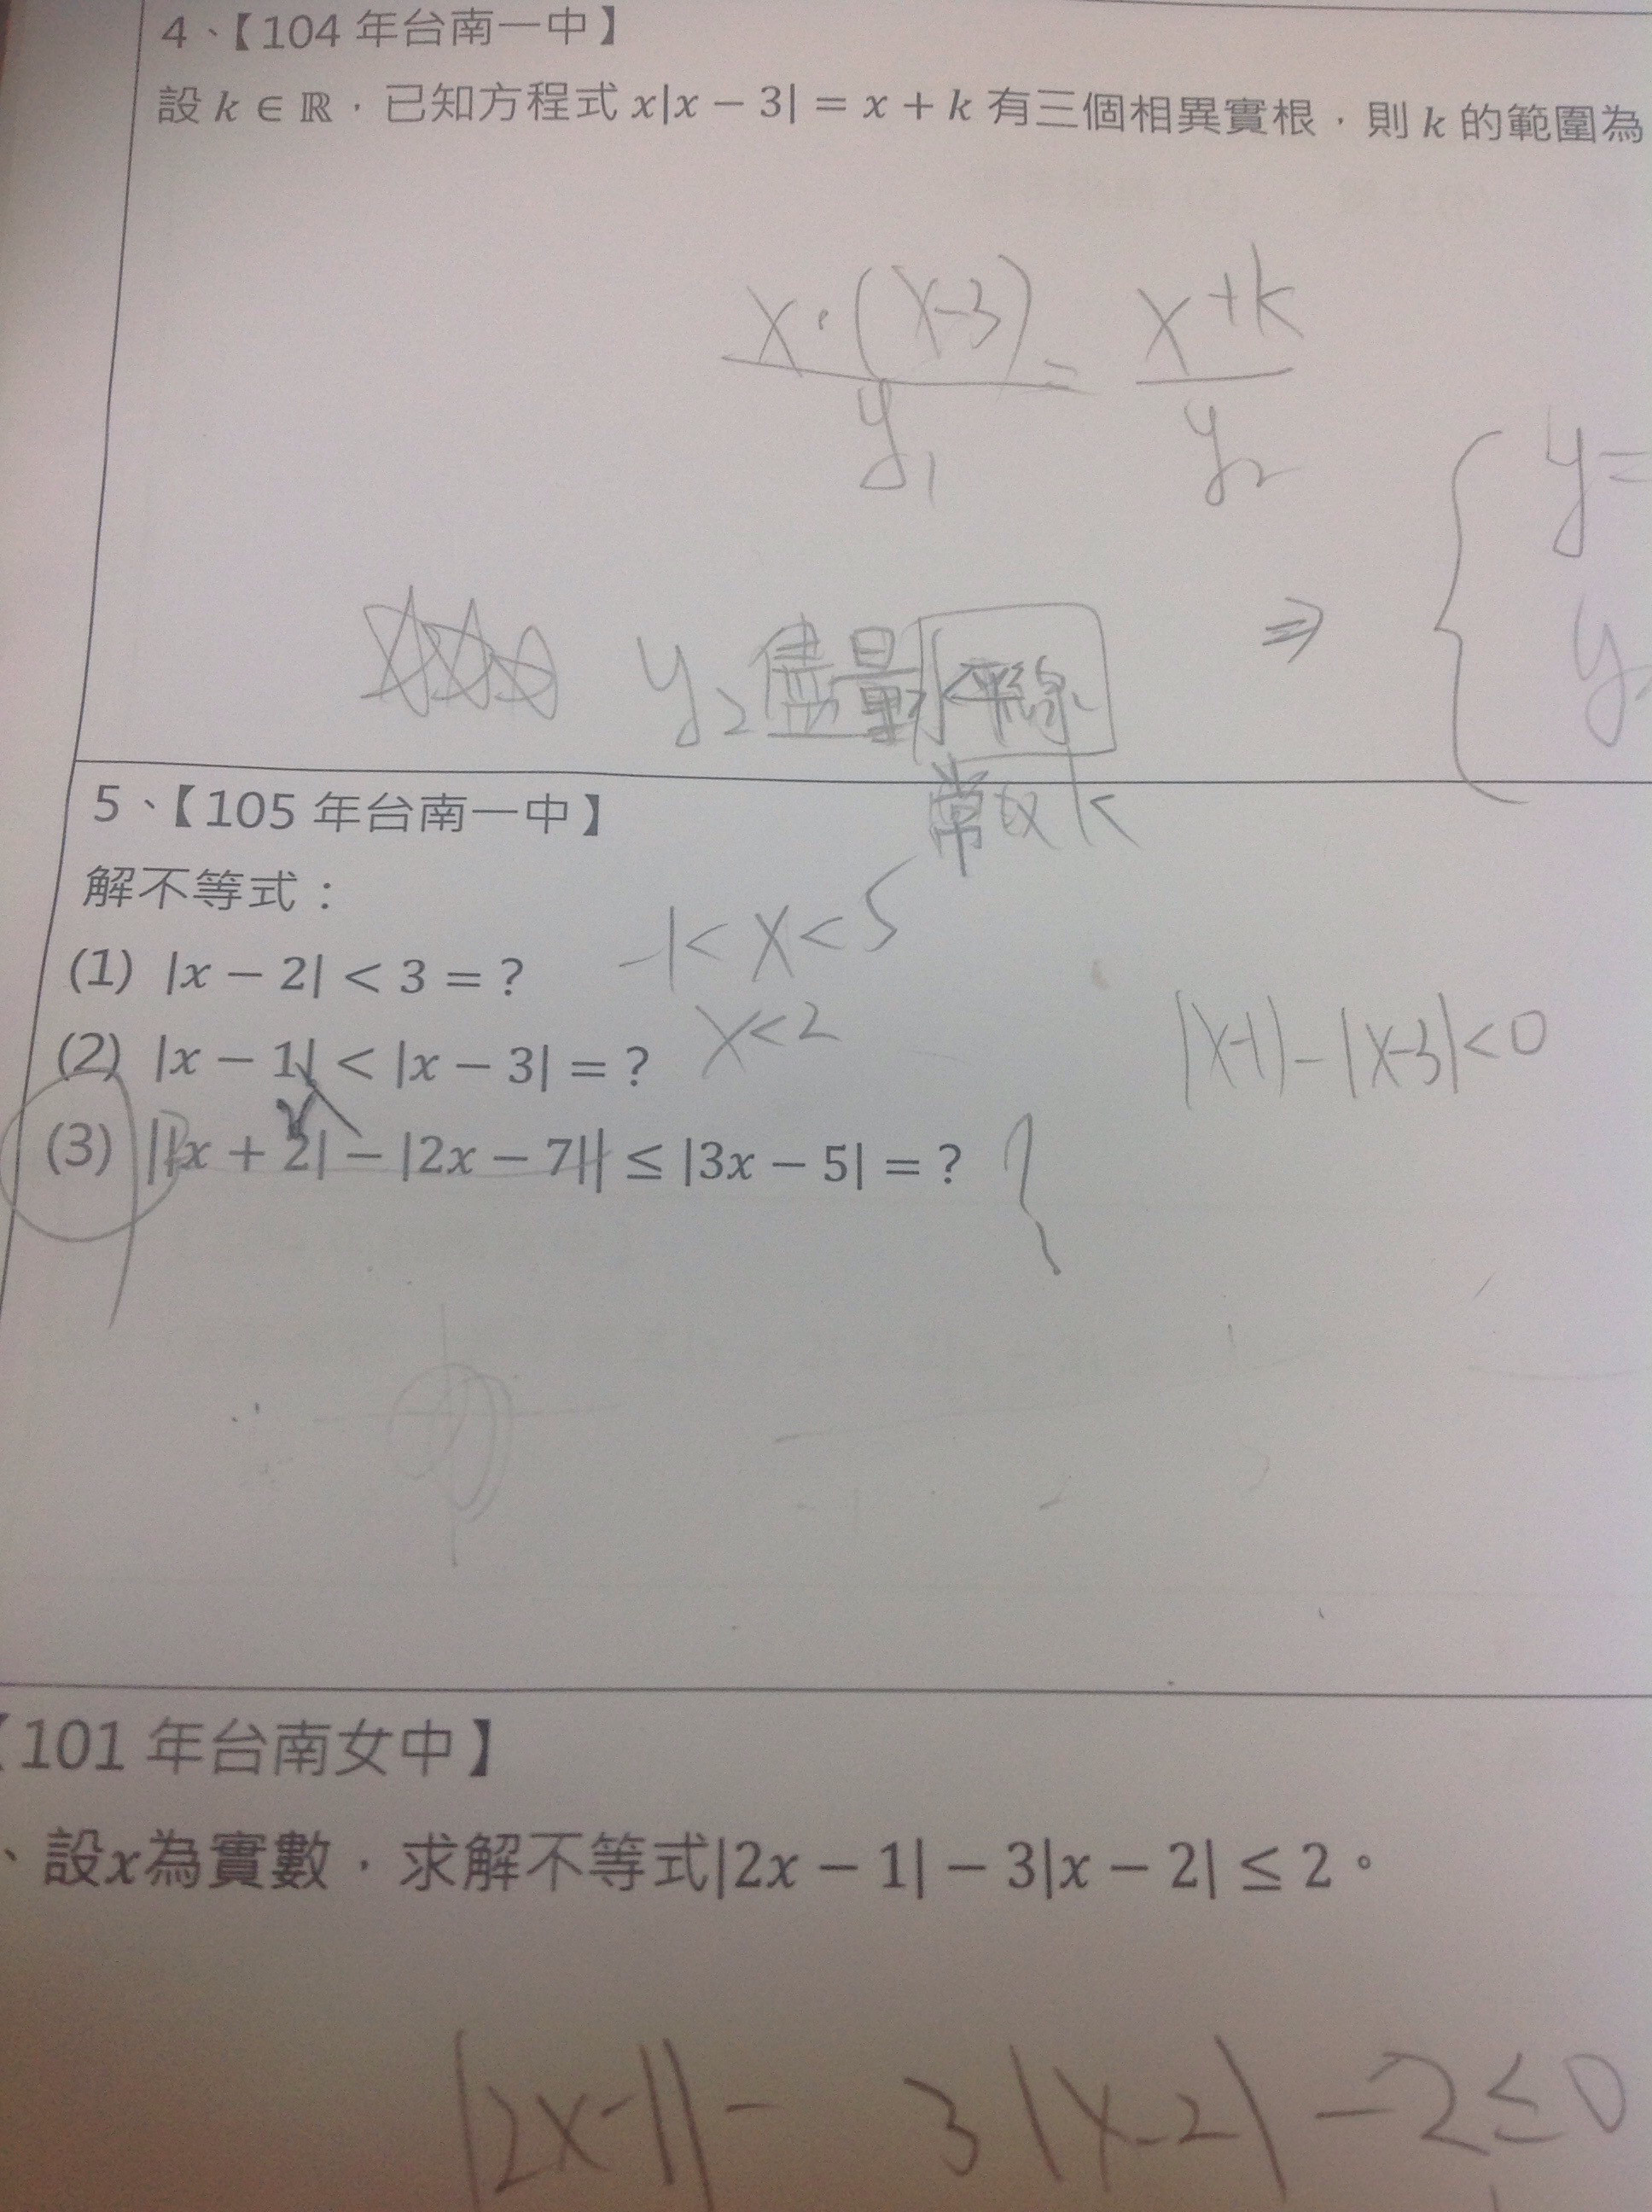 4、【104 年台南一中】
設 k ∈ ℝ，已知方程式 x|x − 3| = x + k 有三個相異實根，則 k 的範圍為
x·(x-3) = x+k
y1 y2
y=
y2 儘量水平線 ⇒ y
常數 k
5、【105 年台南一中】
解不等式：
(1) |x − 2| < 3 = ? -1<x<5
(2) |x − 1| < |x − 3| = ? x<2 |x-1|-|x-3|<0
(3) ||x + 2| − |2x − 7|| ≤ |3x − 5| = ?
【101 年台南女中】
、設x為實數，求解不等式|2x − 1| − 3|x − 2| ≤ 2。
|2x-1|- 3|x-2|-2≤0